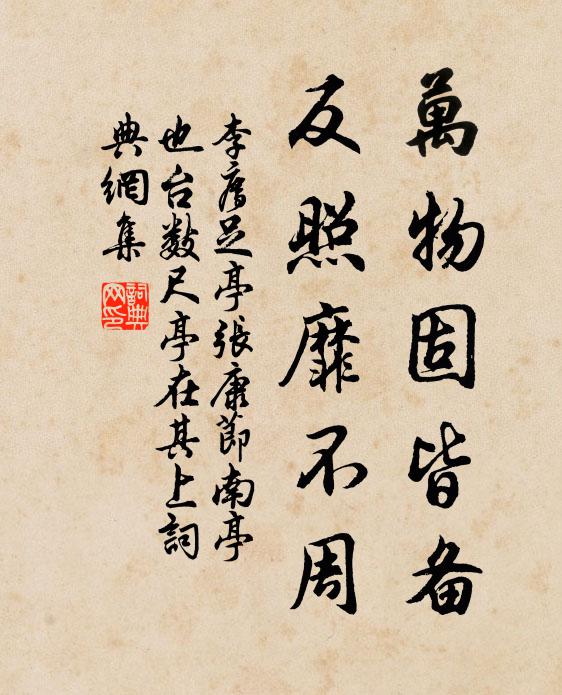 萬物固皆备
反照靡不周
李唐足亭張康節南亭
也台数尺亭在其上詞
典網集
詞典
网印